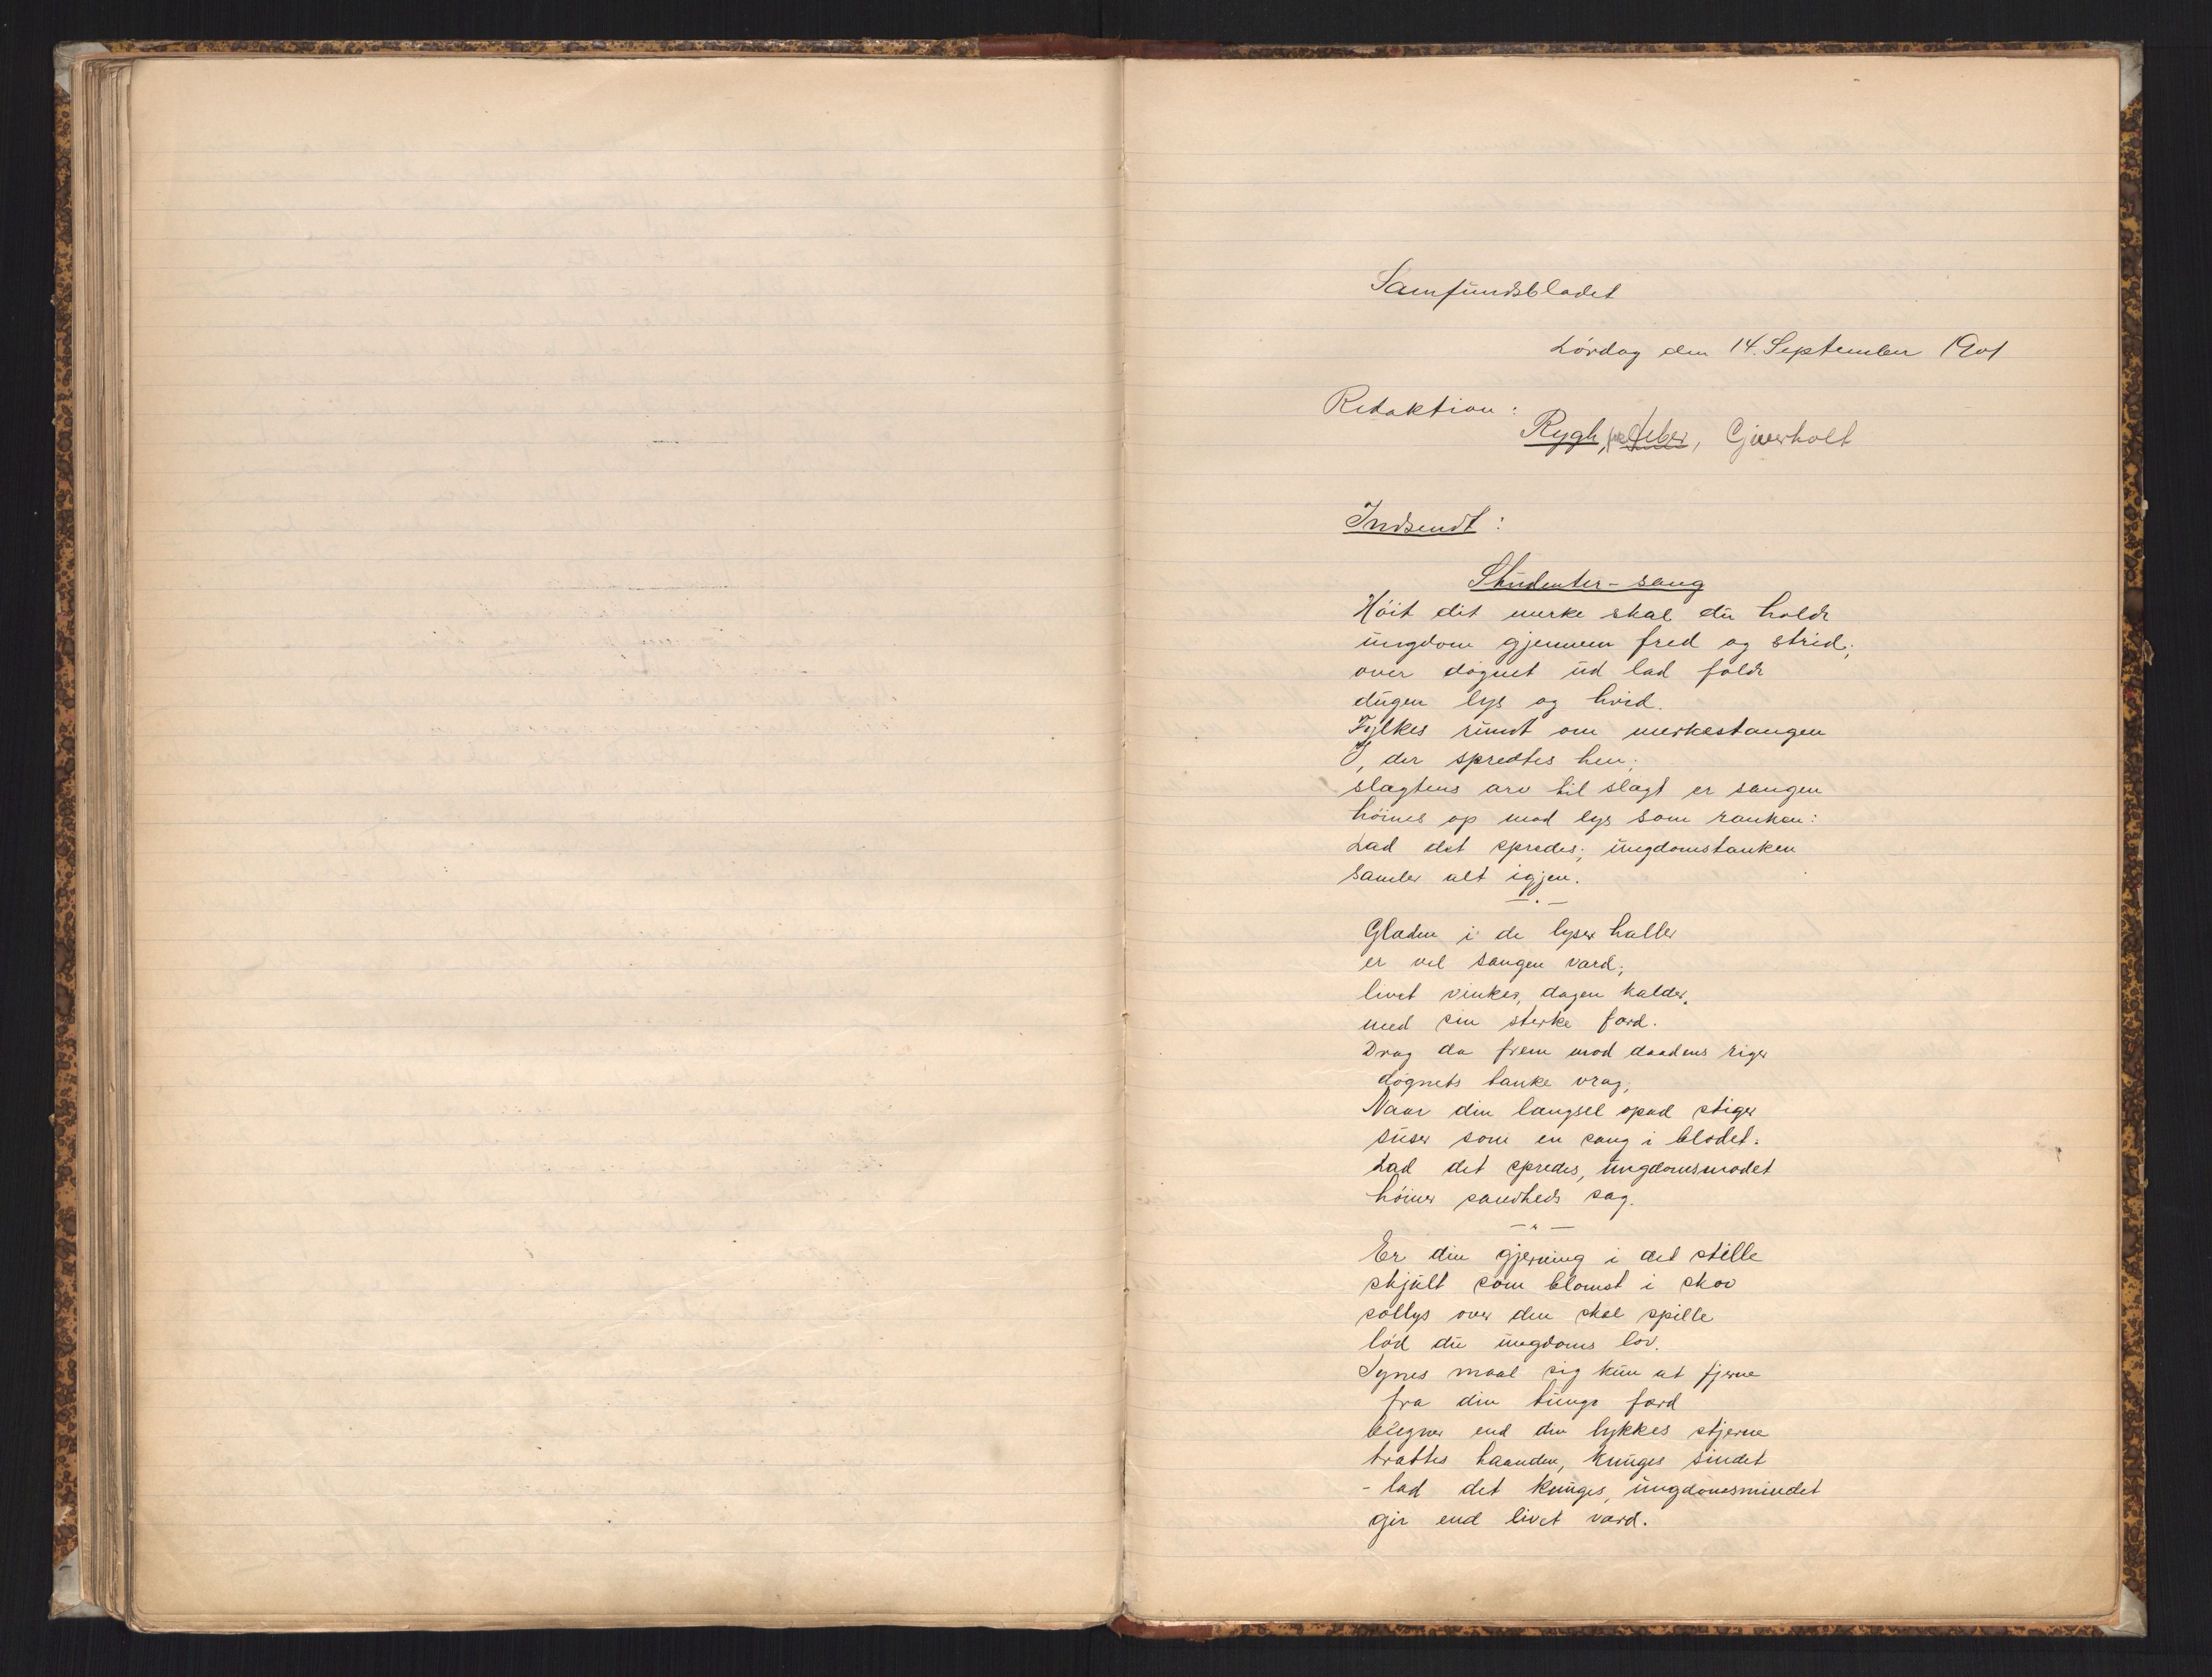 Samfundsbladet
Lördag den 14. September 1901
Redaktion:
Rygh, Gjverholt
Indsendt:
Studenter-sang
Höit dit merke skal du holde
ungdom gjennem fred og strid;
over døgnet ud lad folde
dugen lys og hvid.
Fylkes rundt om merkestangen
I, der spredtes hen;
slægtens arv til slægt er sangen
høines op mod lys som ranken:
Lad det spredes; ungdomstanken
samler alt igjen.
— . —
Glæden i de lyse haller
er vel sangen værd;
livet vinker, dagen kalder,
med sin sterke færd.
Drag da frem mod daadens riger
døgnets tanke vrag,
Naar din længsel opad stiger
suser som en sang i blodet.
Lad det spredes, ungdomsmodet
höiner sandheds sag.
— " —
Er din gjerning i det stille
skjult som blomst i skov
sollys over den skal spille
lød du ungdoms lov.
Synes maal sig kun at fjerne
fra din tunge færd
blegner end din lykkes stjerne
trættes haanden, knuges sindet
- lad det knuges, ungdomsmindet
gir end livet værd.